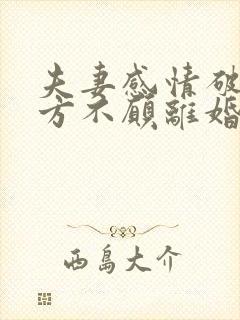 夫妻感情破
方不願離婚
西島大介